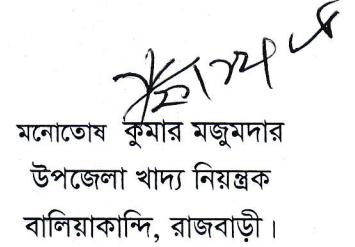 মনোতোষ কুমার মজুমদার
উপজেলা খাদ্য নিয়ন্ত্রক
বালিয়াকান্দি, রাজবাড়ী।